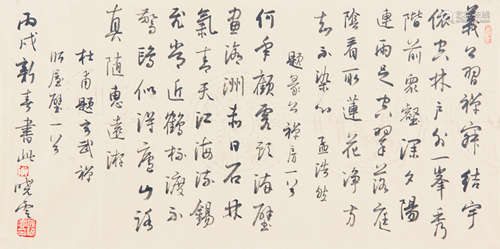 義公習禪寂結宇
依空林戶外一峯秀
階前眾壑深夕陽
連雨足空翠落庭
陰看取蓮花淨方
知不染心 孟浩然
題義公禪房一首
何年顧虎頭滿壁
畫滄洲赤日石林
氣青天江海流錫
飛常近鶴杯渡不
驚鷗似得廬山路
真隨惠遠游
杜甫題玄武禪
師屋壁一首
丙戌新春書此 曉雲